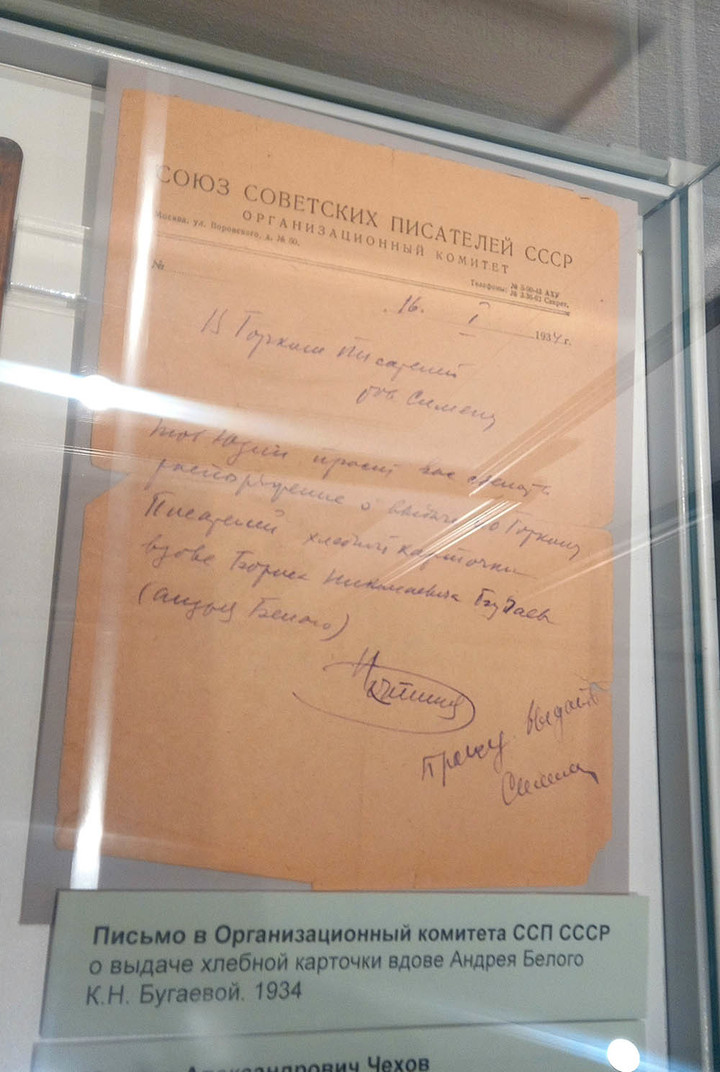 СОЮЗ СОВЕТСКИХ ПИСАТЕЛЕЙ СССР
ОРГАНИЗАЦИОННЫЙ КОМИТЕТ
Москва, ул. Воровского, д. № 50.
Телефоны: № 5-90-45 АХУ
№ 3-36-61 Секрет.
№
16. I 1934 г.
В Горком Писателей
тов
тов просит вас сделать
распоряжение о выдаче Горкому
Писателей хлебной карточки
вдове Бориса Николаевича Бугаева
(Андрея Белого)
Прошу выдать
Письмо в Организационный комитета ССП СССР
о выдаче хлебной карточки вдове Андрея Белого
К.Н. Бугаевой. 1934
Александрович Чехов